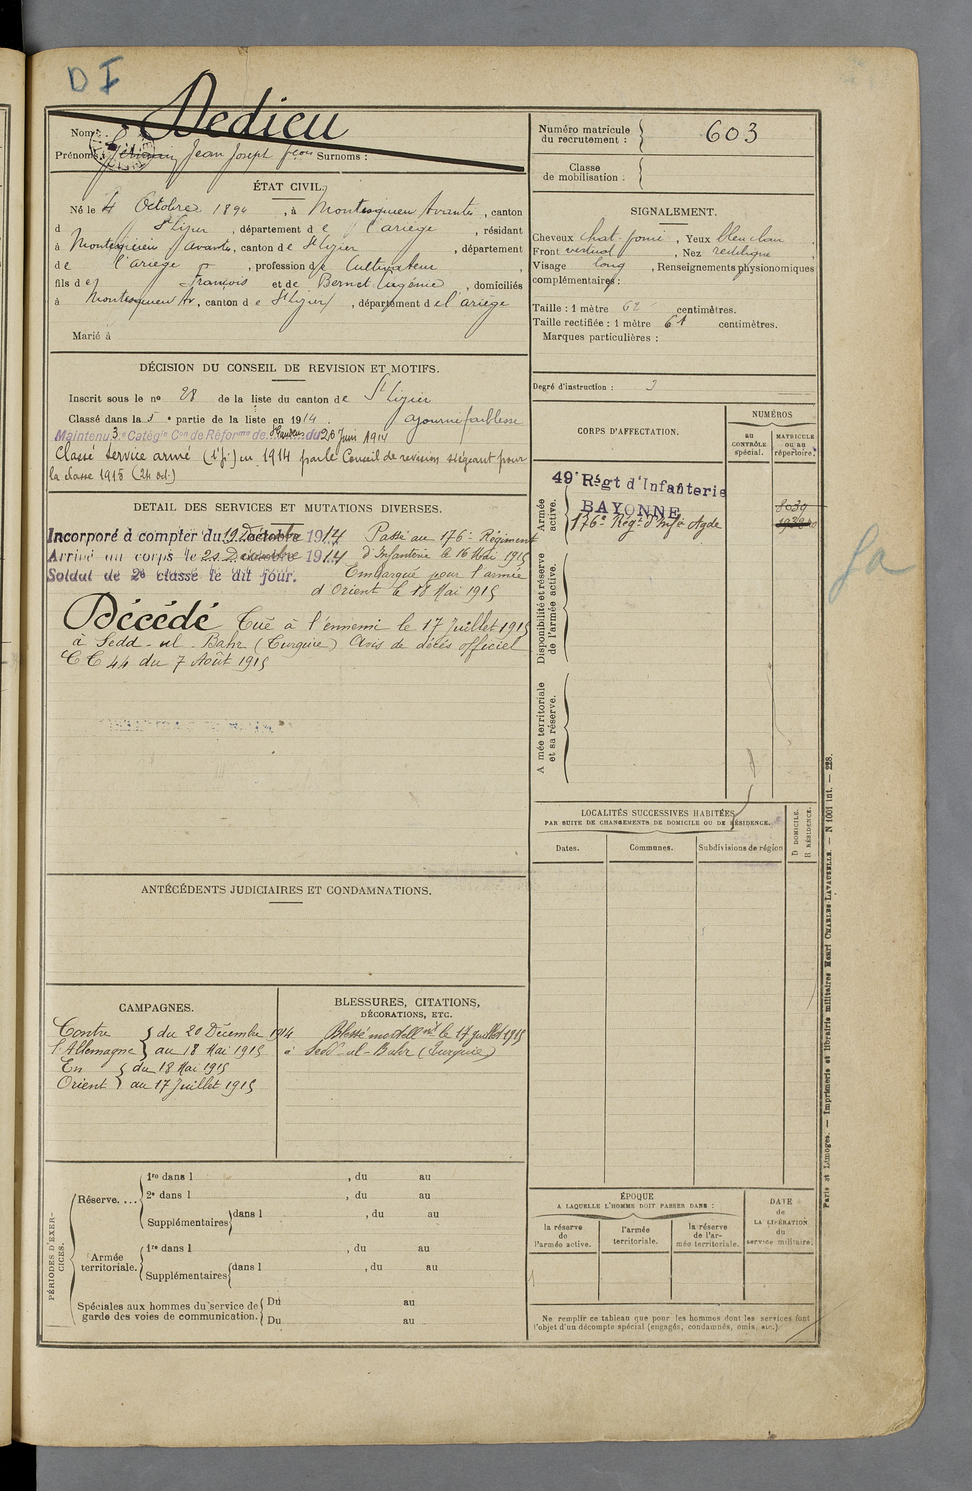 D I
Dedieu
Nom :
Prénoms : Jean Joseph Surnoms :
Numéro matricule
du recrutement :
603
Classe
de mobilisation :
ÉTAT CIVIL.
Né le 4 Octobre 1894, à Montesquieu Avantès, canton
d St Lizier, département de l'ariège, résidant
à Montesquieu Avantès, canton de St Lizier, département
de l'ariège, profession de Cultivateur,
fils de François et de Bernet Eugénie, domiciliés
à Montesquieu Av, canton de St Lizier, département de l'ariège
Marié à
SIGNALEMENT.
Cheveux chat. foncé, Yeux bleu clair
Front vertical, Nez rectiligne
Visage long, Renseignements physionomiques
complémentaires :
Taille : 1 mètre 62 centimètres.
Taille rectifiée : 1 mètre 61 centimètres.
Marques particulières :
Degré d'instruction : 3
DÉCISION DU CONSEIL DE REVISION ET MOTIFS.
Inscrit sous le no 28 de la liste du canton de St Lizier
Classé dans la 5e partie de la liste en 1914 ajourné faiblesse
Maintenu 3e Catégie Con de Réforme de du 26 Juin 1914
Classé Service armé (1e p.) en 1914 par le Conseil de revision siégeant pour
la classe 1915 (24 oct.)
CORPS D'AFFECTATION.
NUMÉROS
au
CONTRÔLE
spécial.
MATRICULE
ou au
répertoire.
Armée
active.
49e Régt d'Infanterie
BAYONNE
176e Régt d'Infie Agde
8039
Disponibilité et réserve
de l'armée active.
A mée territoriale
et sa réserve.
DETAIL DES SERVICES ET MUTATIONS DIVERSES.
Incorporé à compter du 19 Décembre 1914
Arrivé au corps le 20 Décembre 1914
Soldat de 2e classe le dit jour.
Passé au 176e Régiment
d'Infanterie le 16 Mai 1915
Embarqué pour l'armée
d'Orient le 18 Mai 1915
Décédé Tué à l'ennemi le 17 Juillet 1915
à Sedd-ul-Bahr (Turquie) Avis de décès officiel
CC 44 du 7 Août 1915
LOCALITÉS SUCCESSIVES HABITÉES
PAR SUITE DE CHANGEMENTS DE DOMICILE OU DE RÉSIDENCE.
Dates.
Communes.
Subdivisions de région
D DOMICILE.
R RÉSIDENCE.
ANTÉCÉDENTS JUDICIAIRES ET CONDAMNATIONS.
CAMPAGNES.
Contre l'Allemagne du 20 Décembre 1914
au 18 Mai 1915
En Orient du 18 Mai 1915
au 17 Juillet 1915
BLESSURES, CITATIONS,
DÉCORATIONS, ETC.
Blessé mortellnt le 17 juillet 1915
à Sedd-ul-Bahr (Turquie)
PÉRIODES D'EXER-
CICES.
Réserve....
1re dans l , du au
2e dans l , du au
Supplémentaires dans l , du au
Armée
territoriale.
1re dans l , du au
Supplémentaires dans l , du au
Spéciales aux hommes du service de
garde des voies de communication.
Du au
Du au
ÉPOQUE
A LAQUELLE L'HOMME DOIT PASSER DANS :
la réserve
de
l'armée active.
l'armée
territoriale.
la réserve
de l'ar-
mée territoriale.
DATE
de
LA LIBÉRATION
du
service militaire.
Ne remplir ce tableau que pour les hommes dont les services font
l'objet d'un décompte spécial (engagés, condamnés, omis, etc.)
Paris et Limoges. — Imprimerie et librairie militaires Henri CHARLES-LAVAUZELLE. — N 1001 int. — 228.